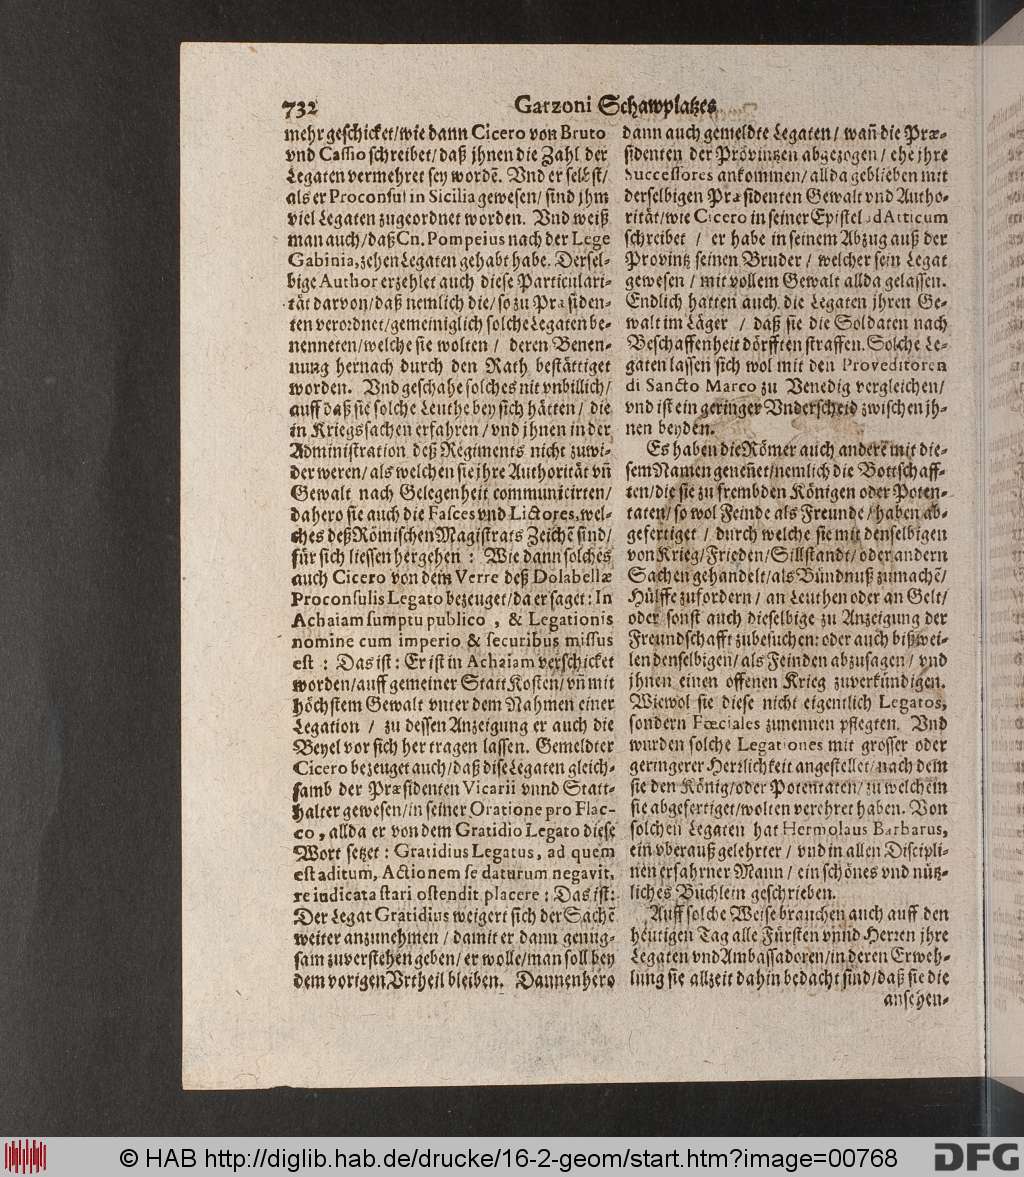 732
Garzoni Schawplatzes
mehr geschicket/wie dann Cicero von Bruto
vnd Cassio schreibet/daß jhnen die Zahl der
Legaten vermehret sey wordē. Vnd er selbst/
als er Proconsul in Sicilia gewesen/sind jhm
viel Legaten zugeordnet worden. Vnd weiß
man auch/daß Cn. Pompeius nach der Lege
Gabinia, zehen Legaten gehabt habe. Dersel-
bige Author erzehlet auch diese Particulari-
tät darvon/daß nemlich die/so zu Præsiden-
ten verordnet/gemeiniglich solche Legaten be-
nenneten/welche sie wolten/ deren Benen-
nung hernach durch den Rath bestättiget
worden. Vnd geschahe solches nit vnbillich/
auff daß sie solche Leuthe bey sich hätten/ die
in Kriegssachen erfahren/vnd jhnen in der
Administration deß Regiments nicht zuwi-
der weren/als welchen sie jhre Authorität vñ
Gewalt nach Gelegenheit communicirten/
dahero sie auch die Fasces vnd Lictores, wel-
ches deß Römischen Magistrats Zeichē sind/
für sich liessen hergehen: Wie dann solches
auch Cicero von dem Verre deß Dolabellæ
Proconsulis Legato bezeuget/da er saget: In
Achaiam sumptu publico, & Legationis
nomine cum imperio & securibus missus
est: Das ist: Er ist in Achaiam verschicket
worden/auff gemeiner Statt Kosten/vñ mit
höchstem Gewalt vnter dem Nahmen einer
Legation / zu dessen Anzeigung er auch die
Beyel vor sich her tragen lassen. Gemeldter
Cicero bezeuget auch/daß dise Legaten gleich-
samb der Præsidenten Vicarii vnnd Statt-
halter gewesen/in seiner Oratione pro Flac-
co, allda er von dem Gratidio Legato diese
Wort setzet: Gratidius Legatus, ad quem
est aditum, Actionem se daturum negavit,
re iudicata stari ostendit placere: Das ist:
Der Legat Gratidius weigert sich der Sachē
weiter anzunehmen / damit er dann genug-
sam zuverstehen geben/er wolle/man soll bey
dem vorigen Vrtheil bleiben. Dannenhero
dann auch gemeldte Legaten/ wañ die Præ-
sidenten der Provintzen abgezogen/ ehe jhre
Successores ankommen/allda geblieben mit
derselbigen Præsidenten Gewalt vnd Autho-
rität/wie Cicero in seiner Epistel ad Atticum
schreibet / er habe in seinem Abzug auß der
Provintz seinen Bruder/ welcher sein Legat
gewesen / mit vollem Gewalt allda gelassen.
Endlich hatten auch die Legaten jhren Ge-
walt im Läger / daß sie die Soldaten nach
Beschaffenheit dörfften straffen. Solche Le-
gaten lassen sich wol mit den Proveditoren
di Sancto Marco zu Venedig vergleichen/
vnd ist ein geringer Vnderscheid zwischen jh-
nen beyden.
Es haben die Römer auch anderē mit die-
sem Namen geneñet/nemlich die Bottschaff-
ten/die sie zu frembden Königen oder Poten-
taten/so wol Feinde als Freunde/haben ab-
gefertiget / durch welche sie mit denselbigen
von Krieg/Frieden/Stillstandt/oder andern
Sachen gehandelt/als Bündnuß zumachē/
Hülffe zufordern/ an Leuthen oder an Gelt/
oder sonst auch dieselbige zu Anzeigung der
Freundschafft zubesuchen: oder auch bißwei-
len denselbigen/als Feinden abzusagen/ vnd
jhnen einen offenen Krieg zuverkündigen.
Wiewol sie diese nicht eigentlich Legatos,
sondern Fœciales zunennen pflegten. Vnd
wurden solche Legationes mit grosser oder
geringerer Herrlichkeit angestellet/nach dem
sie den König/oder Potentaten/zu welchem
sie abgefertiget/wolten verehret haben. Von
solchen Legaten hat Hermolaus Barbarus,
ein vberauß gelehrter/ vnd in allen Discipli-
nen erfahrner Mann/ ein schönes vnd nütz-
liches Büchlein geschrieben.
Auff solche Weise brauchen auch auff den
heutigen Tag alle Fürsten vnnd Herren jhre
Legaten vnd Ambassadoren/in deren Erweh-
lung sie allzeit dahin bedacht sind/daß sie die
ansehen-
© HAB http://diglib.hab.de/drucke/16-2-geom/start.htm?image=00768
DFG